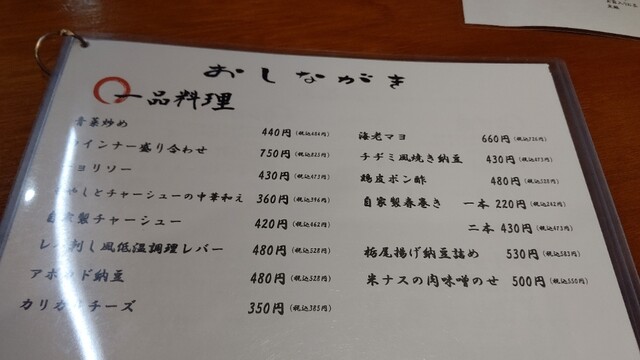 おしながき
一品料理
青菜炒め 440円(税込484円)
インナー盛り合わせ 750円(税込825円)
ョリソー 430円(税込473円)
やしとチャーシューの中華和え 360円(税込396円)
自家製チャーシュー 420円(税込462円)
レバ刺し風低温調理レバー 480円(税込528円)
アボカド納豆 480円(税込528円)
カリカリチーズ 350円(税込385円)
海老マヨ 660円(税込726円)
チヂミ風焼き納豆 430円(税込473円)
鶏皮ポン酢 480円(税込528円)
自家製春巻き 一本 220円(税込242円)
二本 430円(税込473円)
栃尾揚げ納豆詰め 530円(税込583円)
米ナスの肉味噌のせ 500円(税込550円)